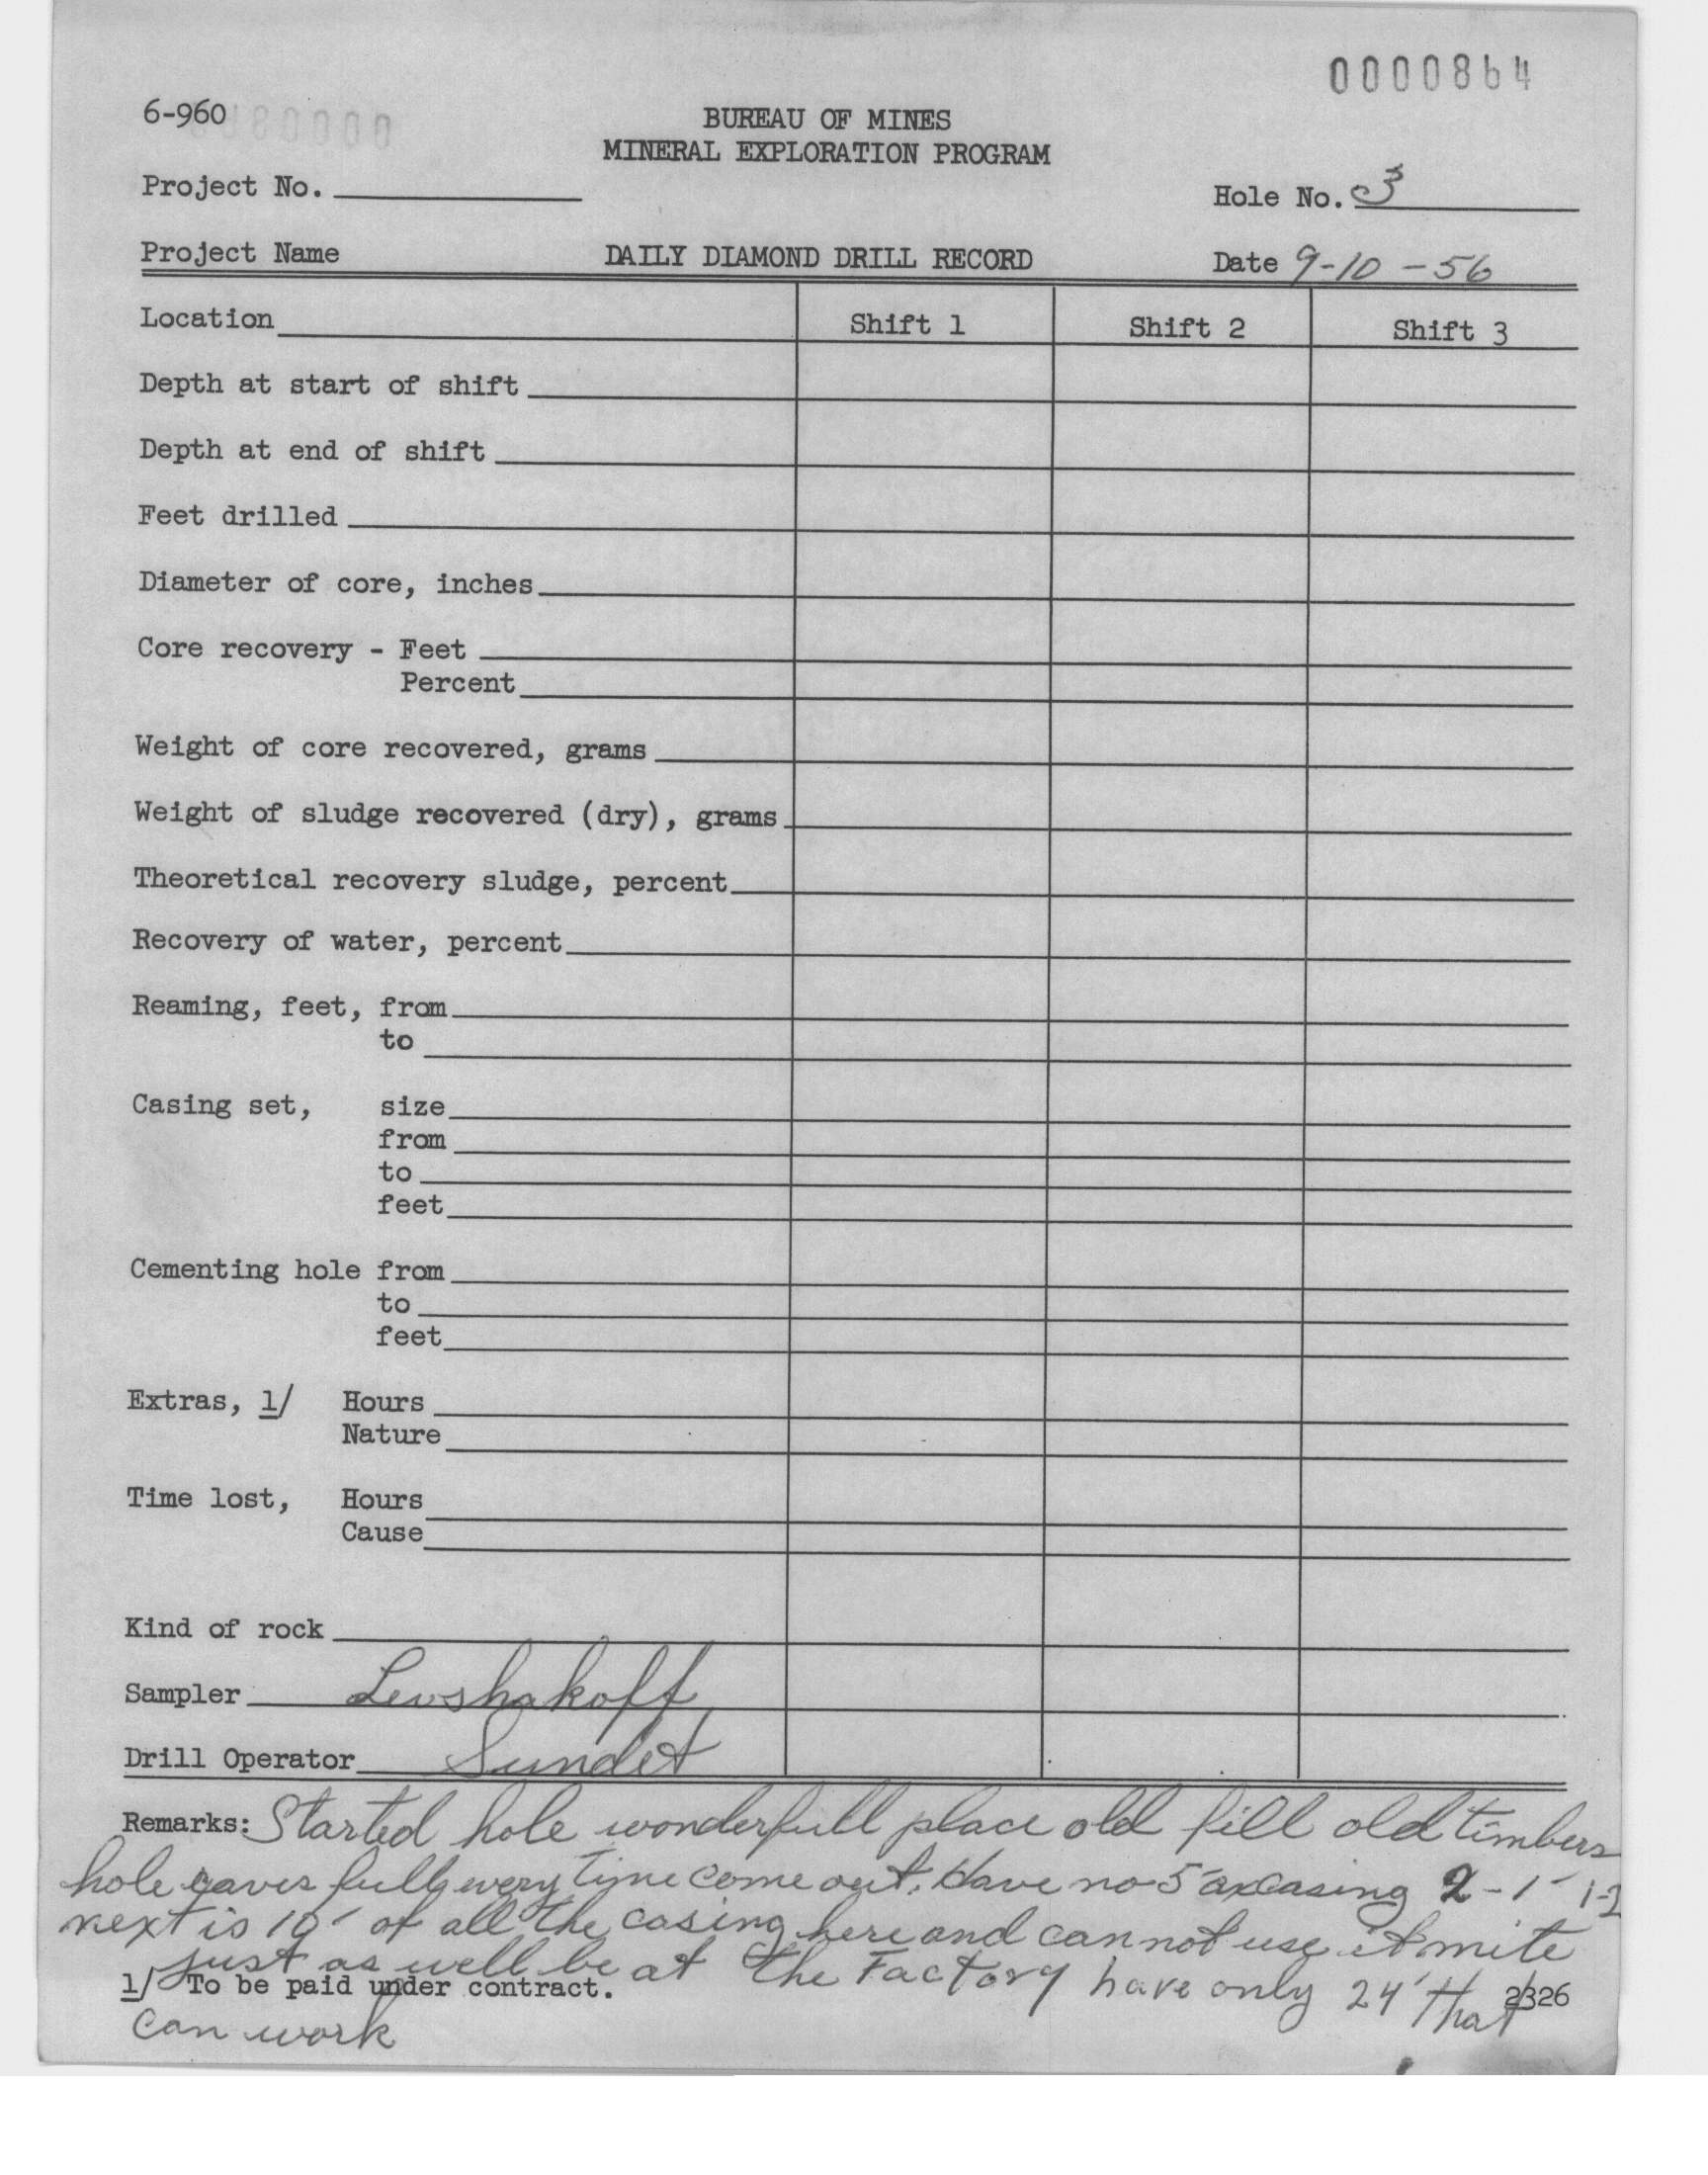 0000864
6-960
BUREAU OF MINES
MINERAL EXPLORATION PROGRAM
Project No.
Hole No. 3
Project Name DAILY DIAMOND DRILL RECORD Date 9-10-56
Location Shift 1 Shift 2 Shift 3
Depth at start of shift
Depth at end of shift
Feet drilled
Diameter of core, inches
Core recovery - Feet
Percent
Weight of core recovered, grams
Weight of sludge recovered (dry), grams
Theoretical recovery sludge, percent
Recovery of water, percent
Reaming, feet, from
to
Casing set, size
from
to
feet
Cementing hole from
to
feet
Extras, 1/ Hours
Nature
Time lost, Hours
Cause
Kind of rock
Sampler Levshakoff
Drill Operator Sundet
Remarks: Started hole wonderfull place old fill old timbers
hole caves full every time come out. Have no 5' ax casing 2-1' 1-2
next is 10' of all the casing here and can not use it mite
just as well be at the Factory have only 24' that
1/ To be paid under contract. 2326
can work